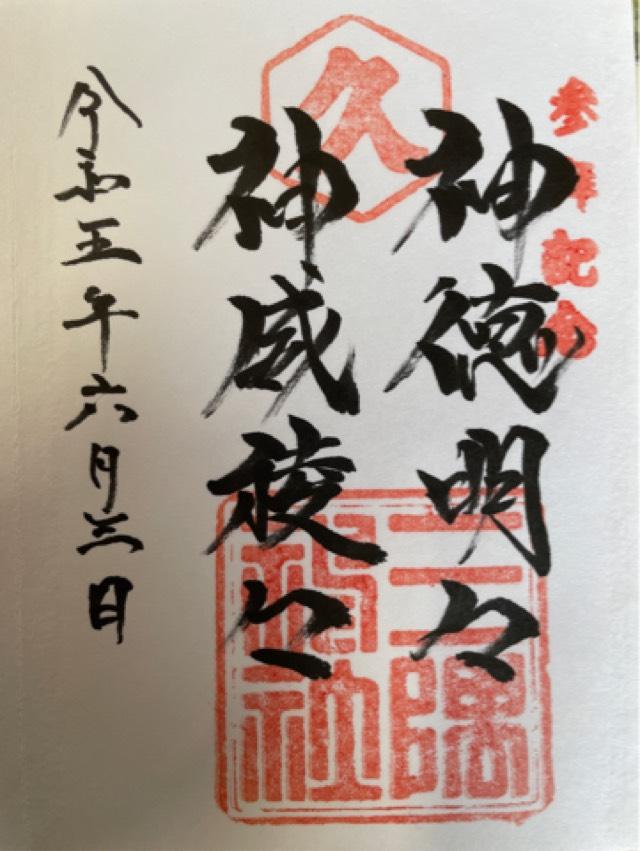 参拝記念
久
神徳明々
神威稜々
三隅神社
令和五年六月三日